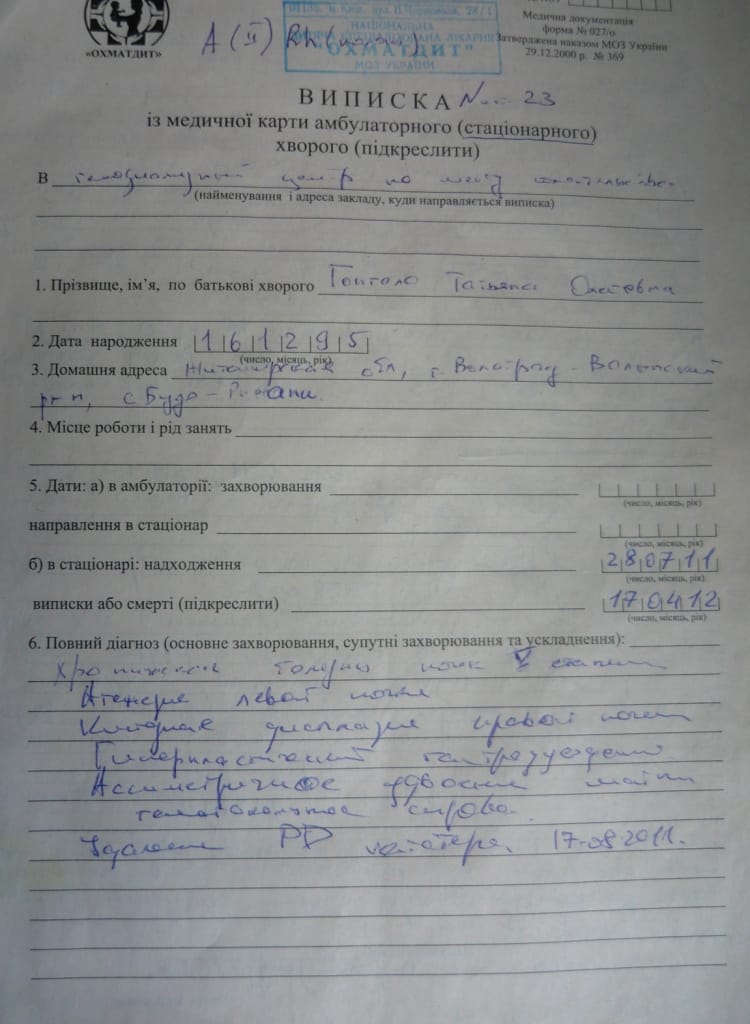 «ОХМАТДИТ»
А (II) Rh
м. Київ, вул. В. Чорновола, 28/1
НАЦІОНАЛЬНА
СПЕЦІАЛІЗОВАНА ЛІКАРНЯ
"ОХМАТДИТ"
МОЗ УКРАЇНИ
Медична документація
форма № 027/о
Затверджена наказом МОЗ України
29.12.2000 р. № 369
ВИПИСКА № 23
із медичної карти амбулаторного (стаціонарного)
хворого (підкреслити)
В центр по месту
(найменування і адреса закладу, куди направляється виписка)
1. Прізвище, ім’я, по батькові хворого Татьяна
2. Дата народження 161295
(число, місяць, рік)
3. Домашня адреса обл, г.
с. Буда-
4. Місце роботи і рід занять
5. Дати: а) в амбулаторії: захворювання
(число, місяць, рік)
направлення в стаціонар
(число, місяць, рік)
б) в стаціонарі: надходження 280711
(число, місяць, рік)
виписки або смерті (підкреслити) 170412
(число, місяць, рік)
6. Повний діагноз (основне захворювання, супутні захворювання та ускладнення):
Хроническая болезнь почек V стадии
левой почки
Кистозная дисплазия правой почки
Асимметричное удвоение матки
справа.
Удаление PD катетера. 17.08.2011.